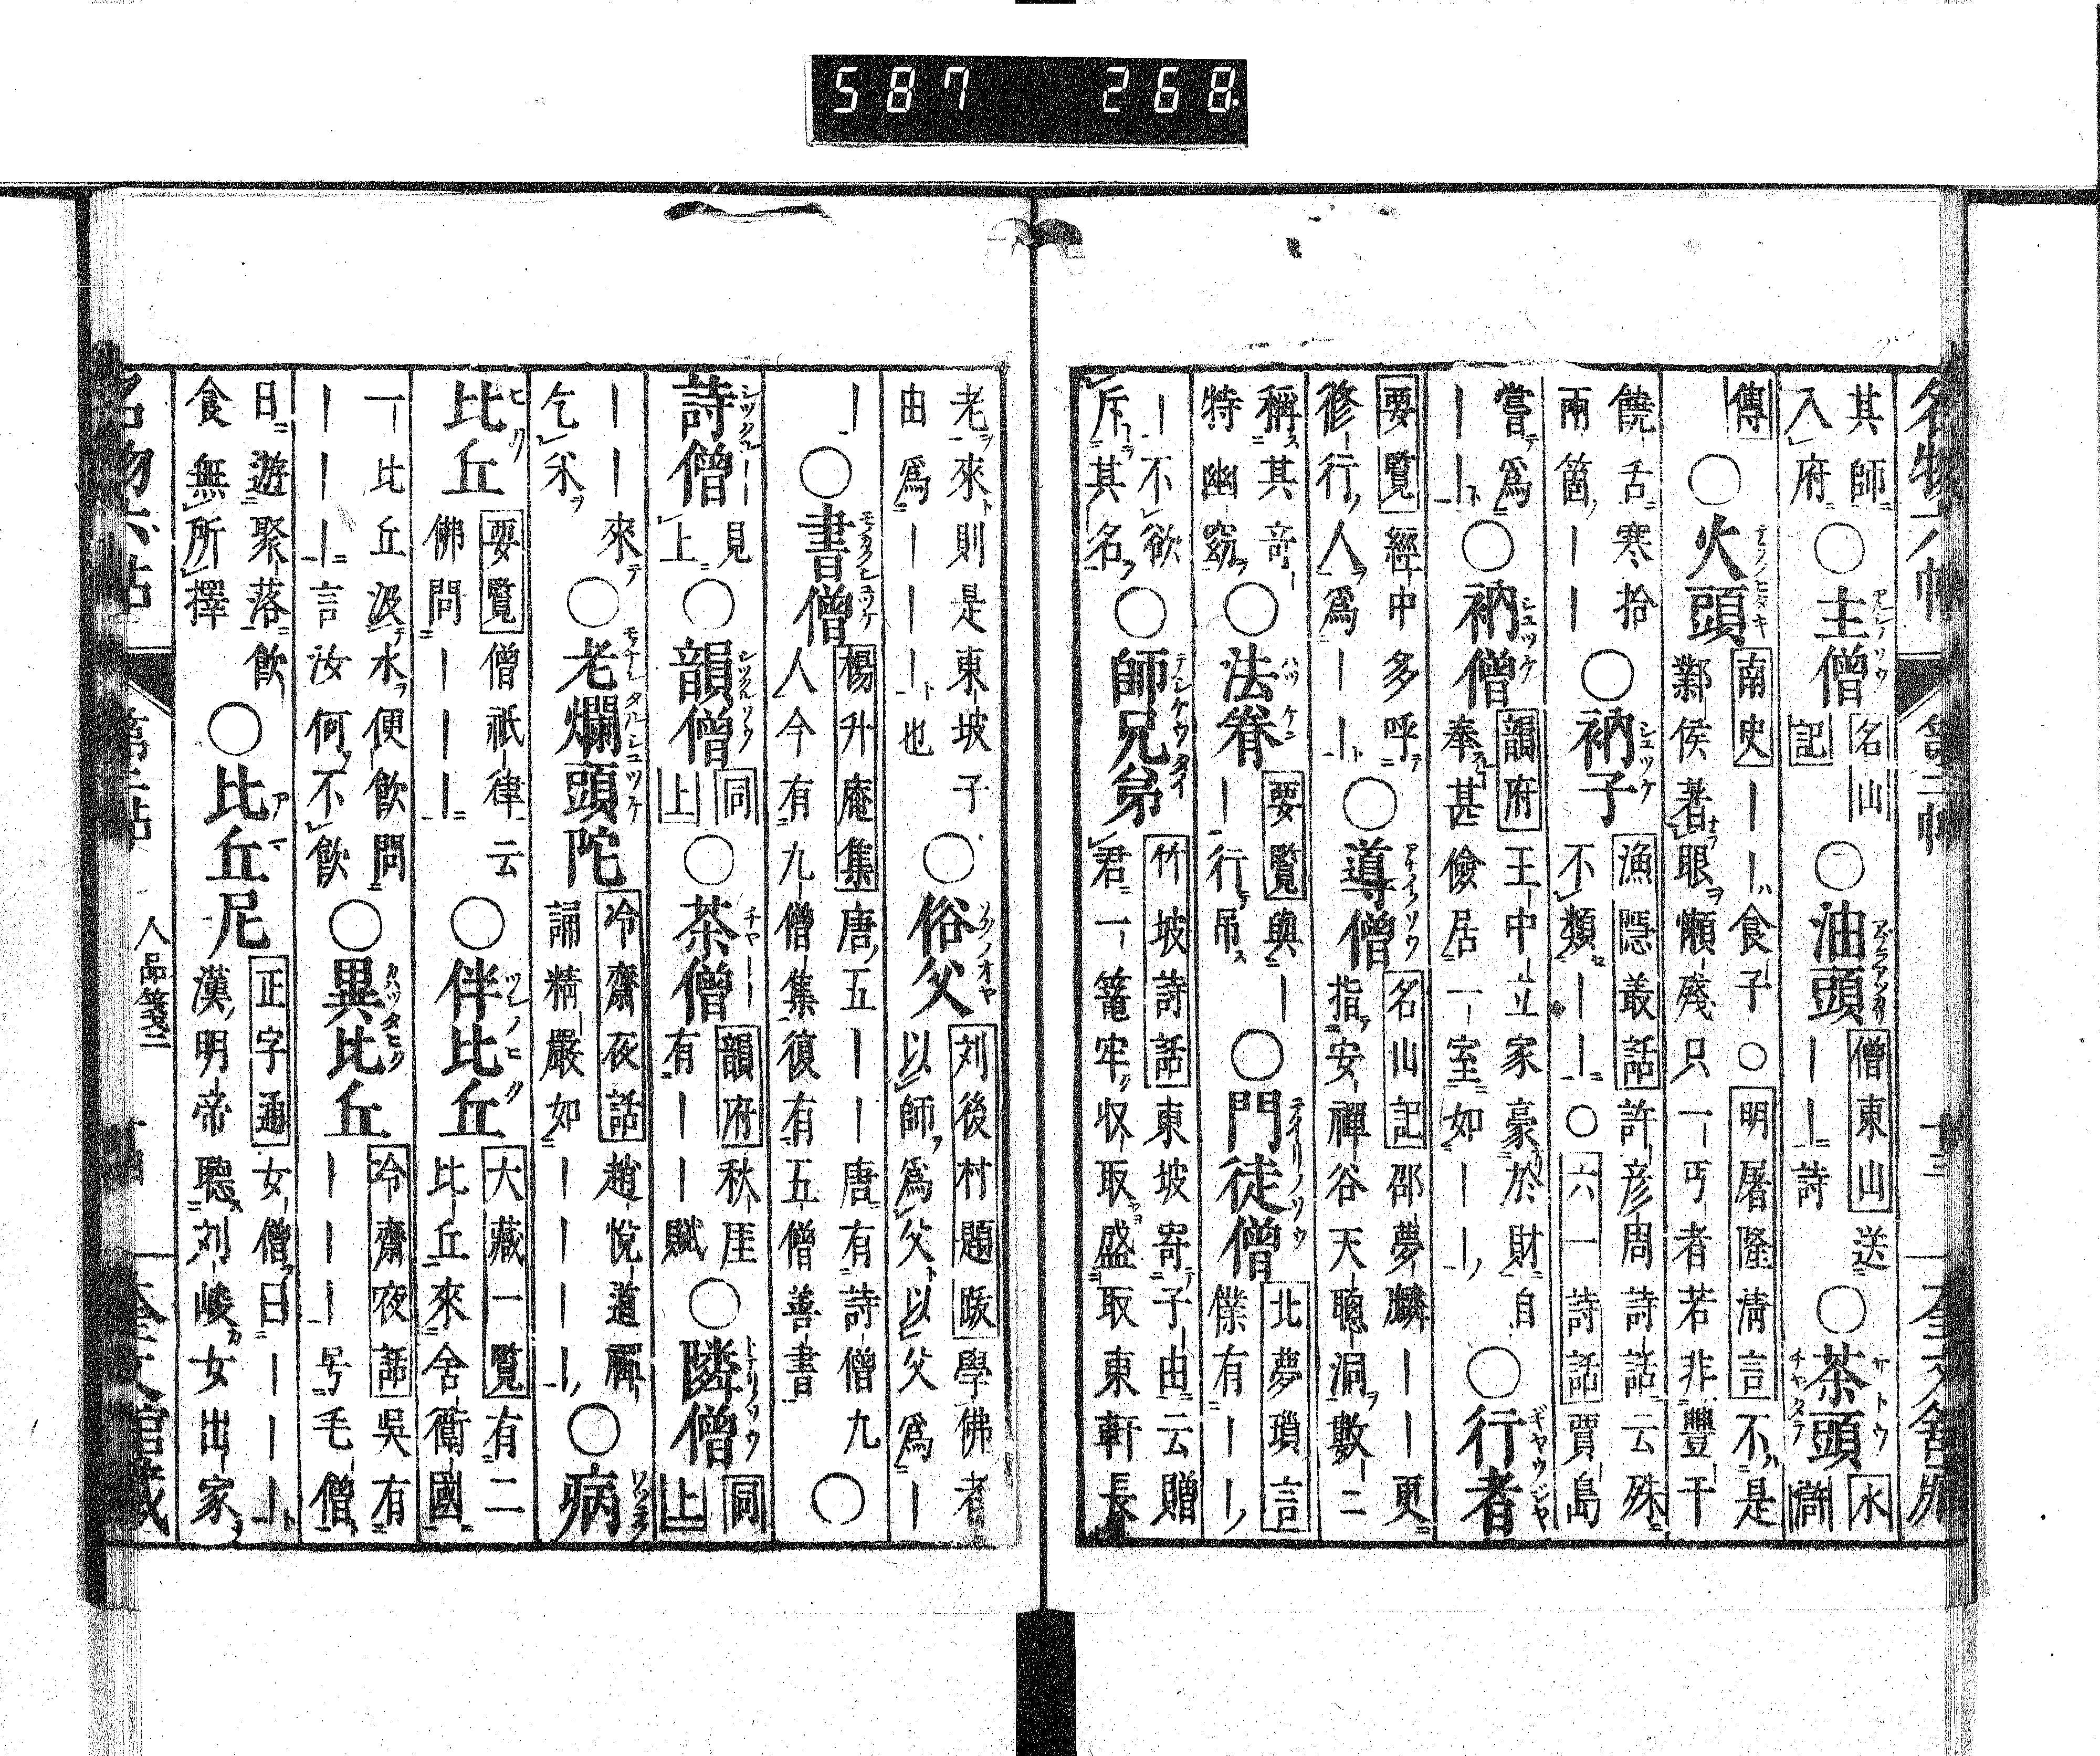 587 268
其師入府○主僧名山記○油頭僧東山送――詩○茶頭水滸
傳○火頭南史――食子○明屠隆淸言不是鄴侯著眼懶殘只一丐者若非豐干
饒舌寒拾兩箇――○衲子漁隱叢話許彦周詩話云殊不類――○六一詩話賈島
嘗爲――○衲僧韻府王中立家豪於財自奉甚儉居一室如――○行者
要覽經中多呼修行人爲――○導僧名山記邵夢麟――更指安禪谷天聰洞數二
稱其奇特幽窈○法眷要覽與―――行吊○門徒僧北夢瑣言僕有――
―不欲斥其名○師兄弟竹坡詩話東坡寄子由云贈君一籠牢収取盛取東軒長
老來則是東坡子由爲―――也○俗父刘後村題跋學佛者以師爲父以父爲―
―○書僧楊升庵集唐五――唐有詩僧九人今有九僧集復有五僧善書○
詩僧―見上○韻僧同上○茶僧―韻府秋厓有――賦○隣僧同上
―――來乞米○老爛頭陀冷齋夜話趙悅道禪誦精嚴如――――○病
比丘要覽僧祇律云佛問―――○伴比丘大藏一覽有二比丘來舍衞國
一比丘汲水便飲問――――言汝何不飲○異比丘冷齋夜話吳有――――号毛僧
日遊聚落飲食無所擇○比丘尼正字通女僧曰―――漢明帝聽刘峻女出家
人品箋二